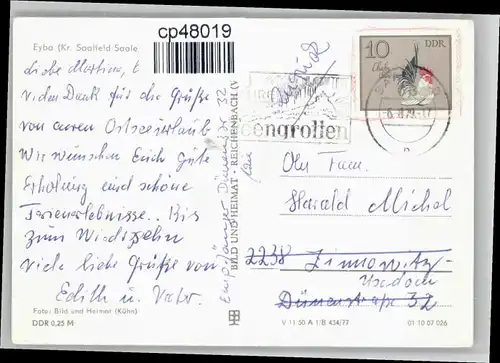 cp48019
Eyba (Kr. Saalfeld Saale
Liebe Martina,
vielen Dank für die Grüße
von eurem Ostseeurlaub
Wir wünschen Euch gute
Erholung und schöne
Ferienerlebnisse.. Bis
zum Wiedersehen
viele liebe Grüße von
Edith u.
Foto: Bild und Heimat (Kühn)
DDR 0,25 M
BILD UND HEIMAT · REICHENBACH (V
32
10
DDR
engrotten
An Fam.
Harald Michel
2238 Zinnowitz
Usedom
Dünenstraße 32
V 11 50 A 1/B 434/77
01 10 07 026